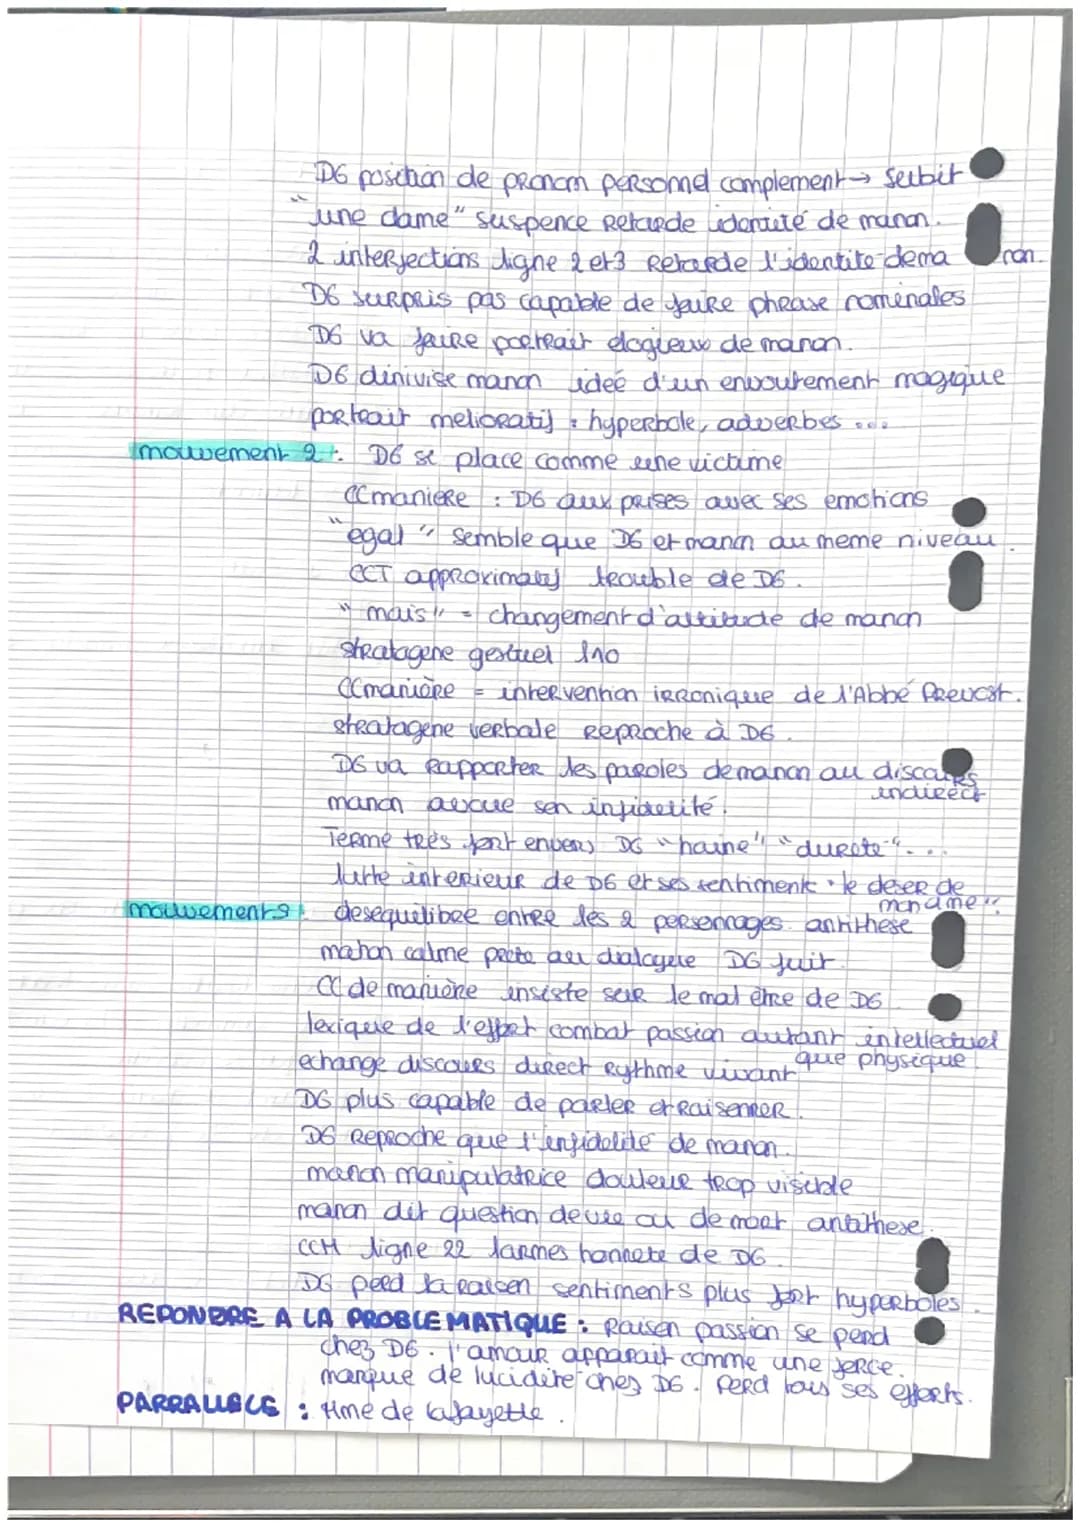 DG position de pronom personnel complement → subit
"une dame" suspence retarde identité de manon.
2 interjections ligne 2 et 3 Retarde l'identite de ma non.
DG surpris pas capable de faire phrase nominales
DG va faire portrait elogieux de manon.
DG dinivise manon idée d'un envoutement magique
portrait melioratif : hyperbole, adverbes ...
mouvement 2 : DG se place comme une victime
CCmaniere : DG aux prises avec ses emotions
"egal" semble que DG et manon au meme niveau.
CCT approximatif trouble de DG.
"mais" = changement d'attitude de manon
stratagene gestuel l10
CCmanière = intervention irronique de l'Abbé Prevost.
stratagene verbale Reproche à DG.
DG va Rapporter les paroles de manon au discours
indirect
manon avoue son infidelité.
Terme très fort envers DG "haine" "dureté"...
lutte interieur de DG et ses sentiments "le deser de
mon ame"
mouvement 3 : desequilibre entre les 2 personnages. antithese
manon calme prete au dialogue DG fuit.
CC de manière insiste sur le mal être de DG
lexique de l'effort combat passion autant intellectuel
que physique.
echange discours direct Rythme vivant
DG plus capable de parler et Raisonner.
DG Reproche que l'infidelité de manon.
manon manipulatrice douleur trop visible
manon dit question de vie ou de mort antithese.
CCM ligne 22 larmes honnete de DG.
DG perd la raison sentiments plus fort hyperboles.
REPONDRE A LA PROBLEMATIQUE : Raison passion se perd
chez DG. l'amour apparait comme une force.
marque de lucidité chez DG. Perd tous ses efforts.
PARRALLELE : Mme de lafayette.